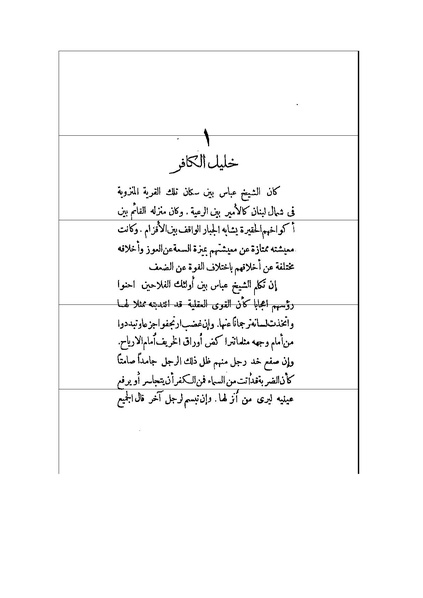 ١
خليل الكافر
كان الشيخ عباس بين سكان تلك القرية المنزوية
فى شمال لبنان كالأمير بين الرعية . وكان منزله القائم بين
أكواخهم الحقيرة يشابه الجبار الواقف بين الأقزام . وكانت
معيشته ممتازة عن معيشتهم بميزة السعة عن العوز وأخلاقه
مختلفة عن أخلاقهم باختلاف القوة عن الضعف
إن تكلم الشيخ عباس بين أولئك الفلاحين احنوا
رؤسهم اعجابا كأن القوى العقلية قد انتدبته ممثلا لها
واتخذت لسانه ترجمانًا عنها. وإن غضب ارتجفوا جزعا وتبددوا
من أمام وجهه مثلما تتراكض أوراق الخريف أمام الارياح.
وإن صفع خد رجل منهم ظل ذلك الرجل جامداً صامتًا
كأن الضربة قد أتت من السماء فمن الكفر أن يتجاسر أو يرفع
عينيه ليرى من أنزلها. وإن تبسم لرجل آخر قال الجميع